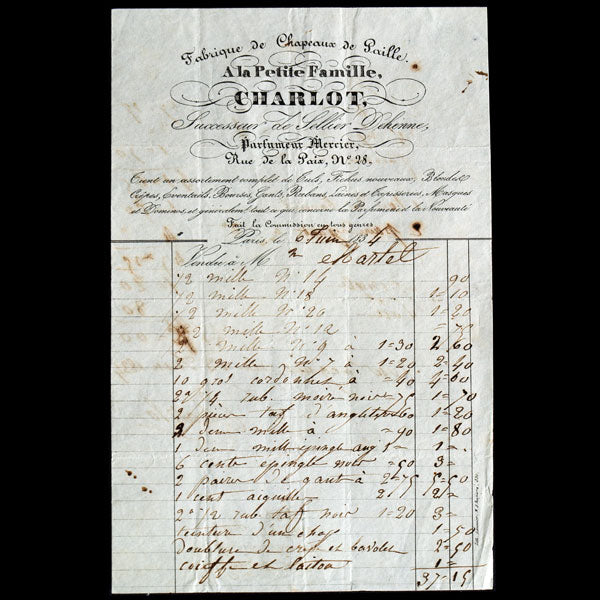 Fabrique de Chapeaux de Paille
A la Petite Famille,
CHARLOT,
Successeur de Sellier Dehenne,
Parfumeur Mercier,
Rue de la Paix, No. 28.
Tient un assortiment complet de Tuls, Fichus nouveaux, Blondes
Crêpes, Eventails, Bourses, Gants, Rubans, Laines et Tapisseries, Masques
et Dominos, et généralemt. tout ce qui concerne la Parfumerie et la Nouveauté
Fait la Commission en tous genres.
Paris, le 6 Juin 34
Vendu à M Martel
/2 mille No 14 90
/2 mille No 18 1=10
/2 mille No 20 1=20
/2 mille No 12 =70
2 mille No 9 à 1=30 2 60
2 mille No 7 à 1=20 2=40
10 gros cordonnet à =40 4=00
2 rub. moire noir 75 1=70
2 pièces taf d'angleterre 60 1=20
2 demi mille à =90 1=80
1 demi mille epingle ang 1=
6 cente epingle noir =50 3=
2 paires de gant à 2=75 5=50
1 cent aiguille 2=
2 1/2 rub taf noir 1=20 3=
teinture d'un chap 1=50
doublure de crep et bavolet 2=50
coiffe et laiton 1=
37=15